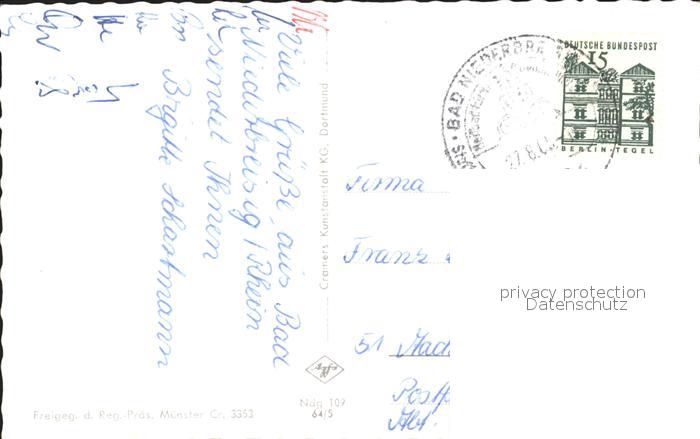 Viele Grüße, aus Bad
Niederbreisig / Rhein
sendet Ihnen
Brigitte Schartmann
Cramers Kunstanstalt KG, Dortmund
BAD NIEDERBR
27.8.6
DEUTSCHE BUNDESPOST
15
BERLIN-TEGEL
Firma
Franz
51 Aach
Postf
Abt.
privacy protection
Datenschutz
Ndg 109
64/5
Freigeg. d. Reg.-Präs. Münster Cr. 3353